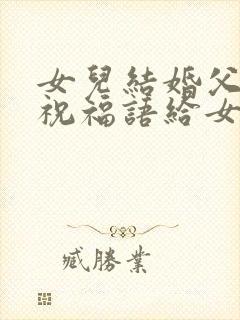 女兒結婚父
祝福語給女
臧勝業